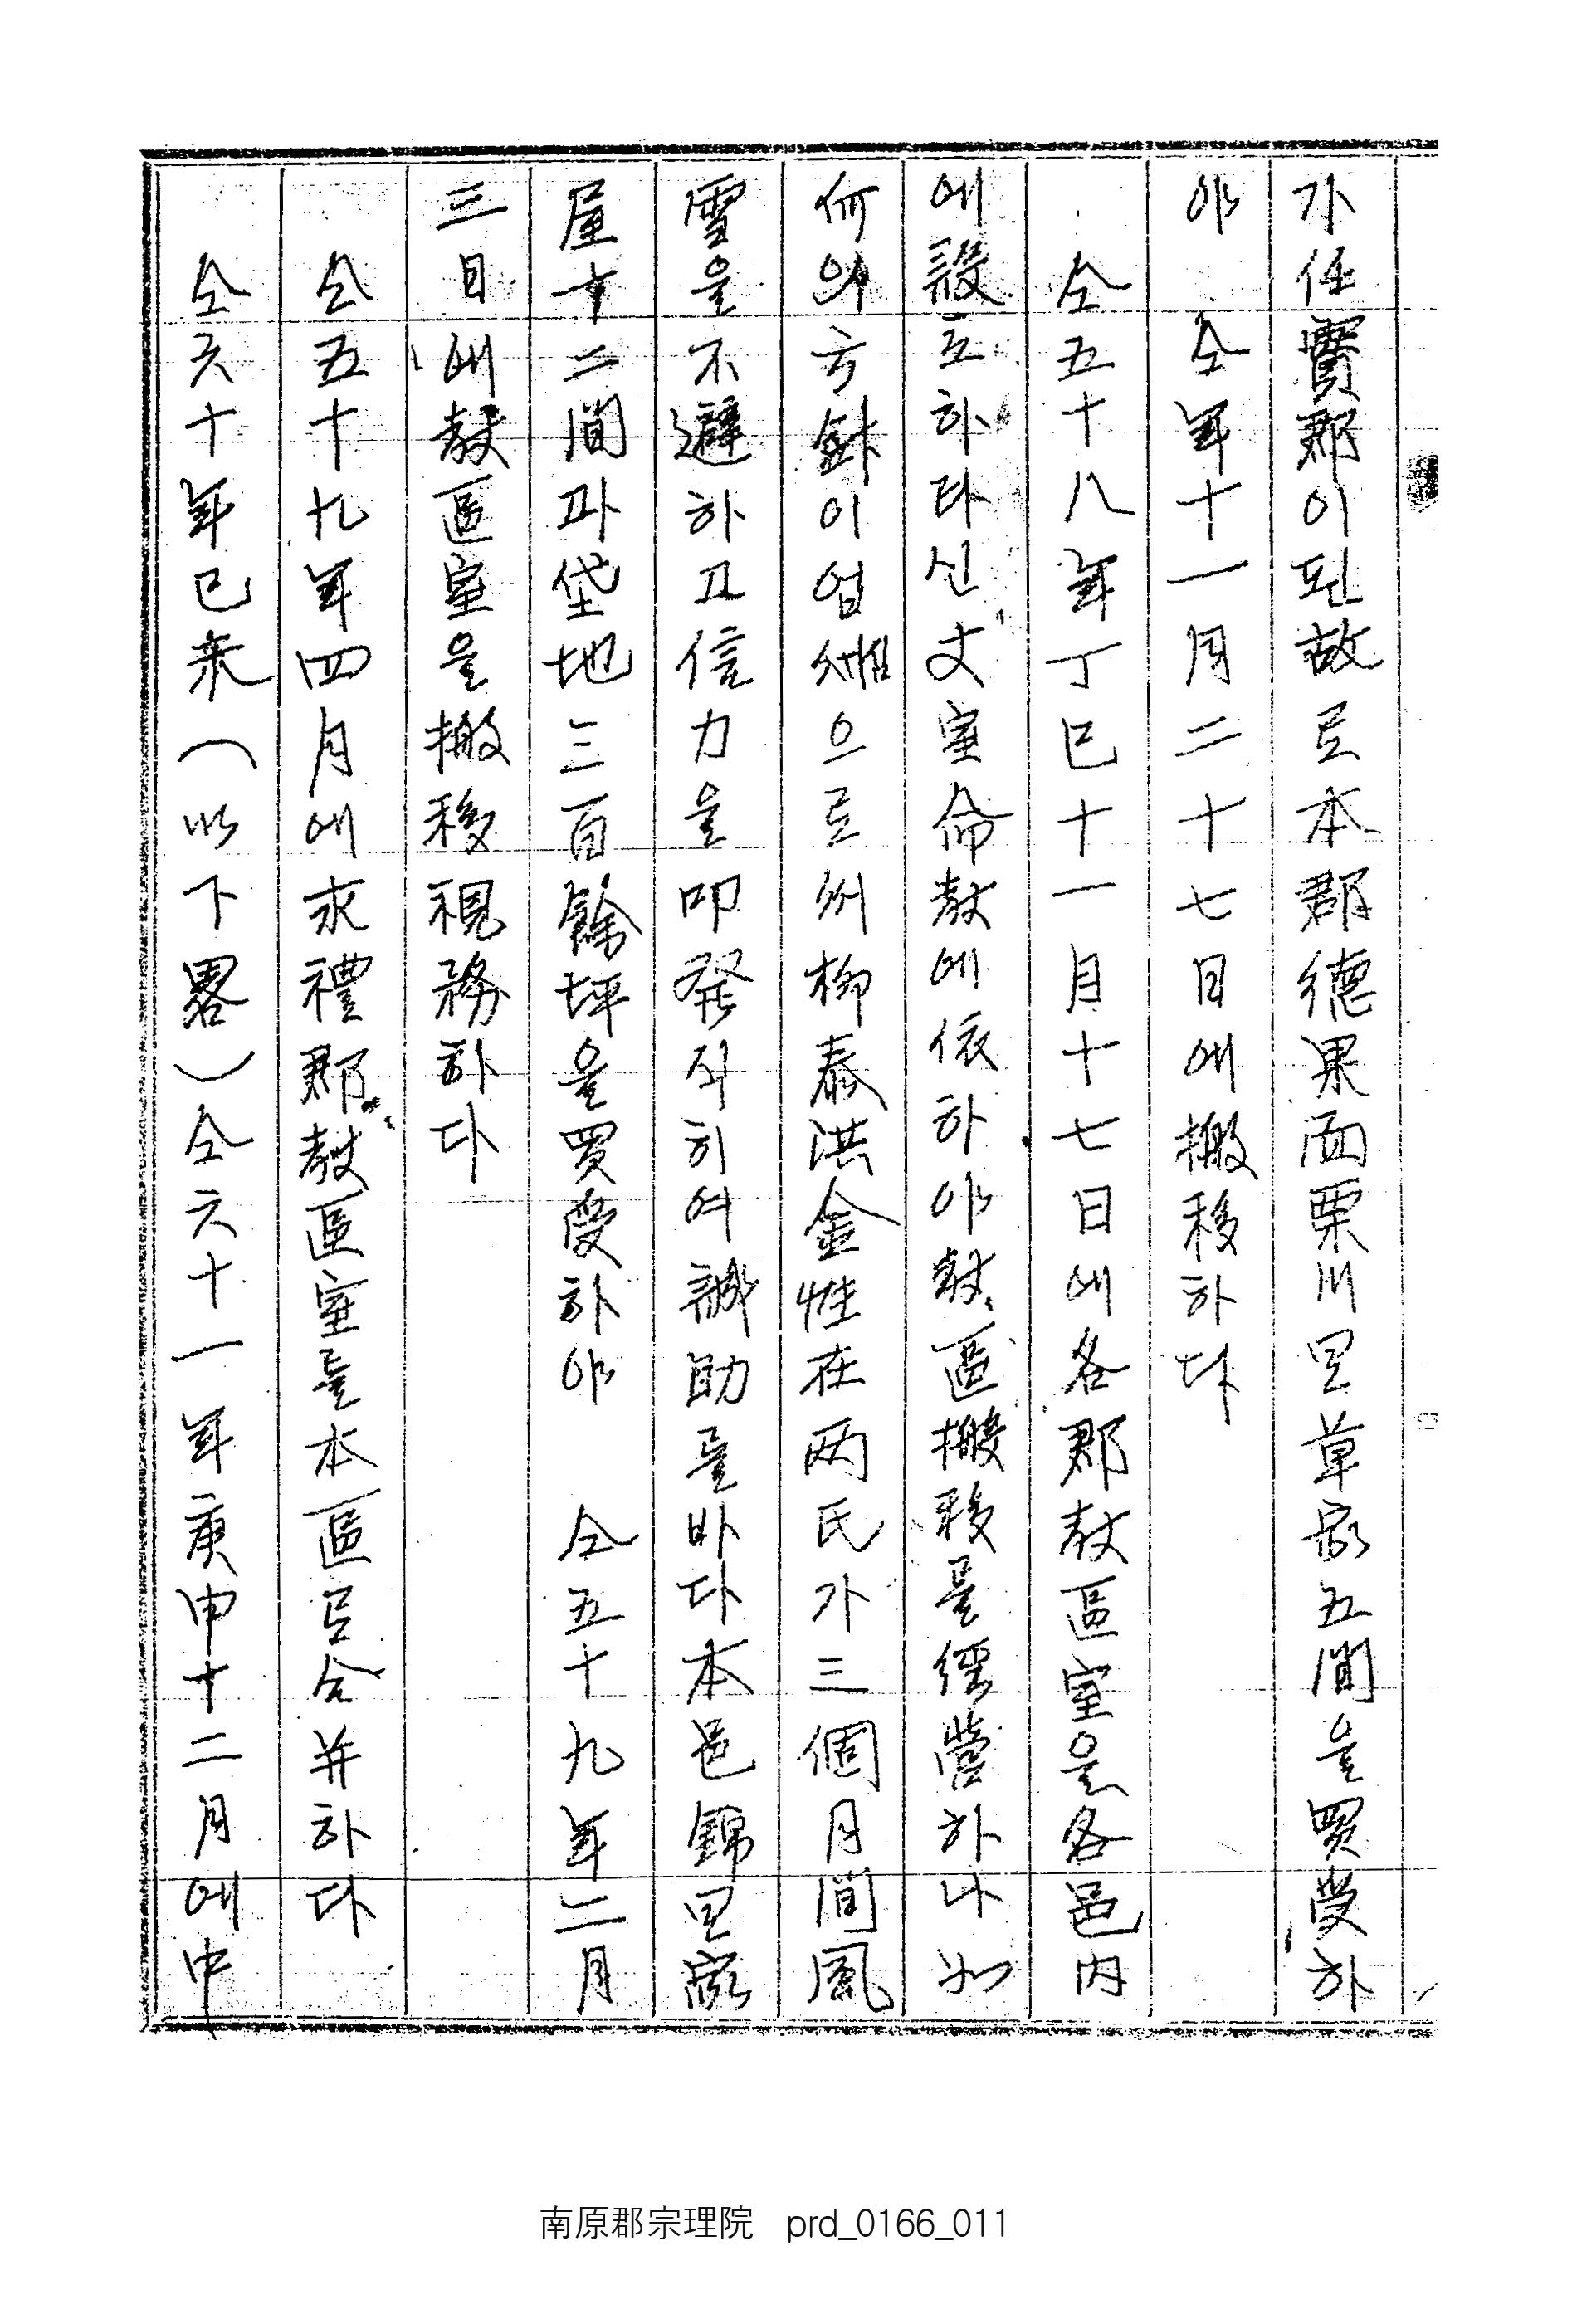 가任實郡이된故로本郡德果面栗川里草家五間을買受하
야 仝年十一月二十七日에搬移하다
仝五十八年丁巳十一月十七日에各郡敎區室을各邑內
에設立하라신丈室命敎에依하야敎區搬移를經營하나如
何의方針이업섯으로州柳泰洪金性在两氏가三個月間風
雪을不避하고信力을叩발식히여誠助를바다本邑錦里家
屋十二間과垈地三百餘坪을買受하야 仝五十九年二月
三日에敎區室을搬移視務하다
仝五十九年四月에求禮郡敎區室를本區로合并하다
仝六十年己未(以下畧)仝六十一年庚申十二月에中
南原郡宗理院 prd_0166_011